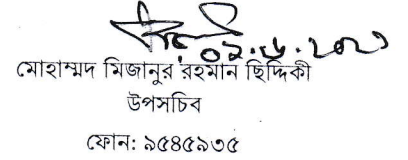 ০২.৬.২০২১
মোহাম্মদ মিজানুর রহমান ছিদ্দিকী
উপসচিব
ফোন: ৯৫৪৫৯৩৫